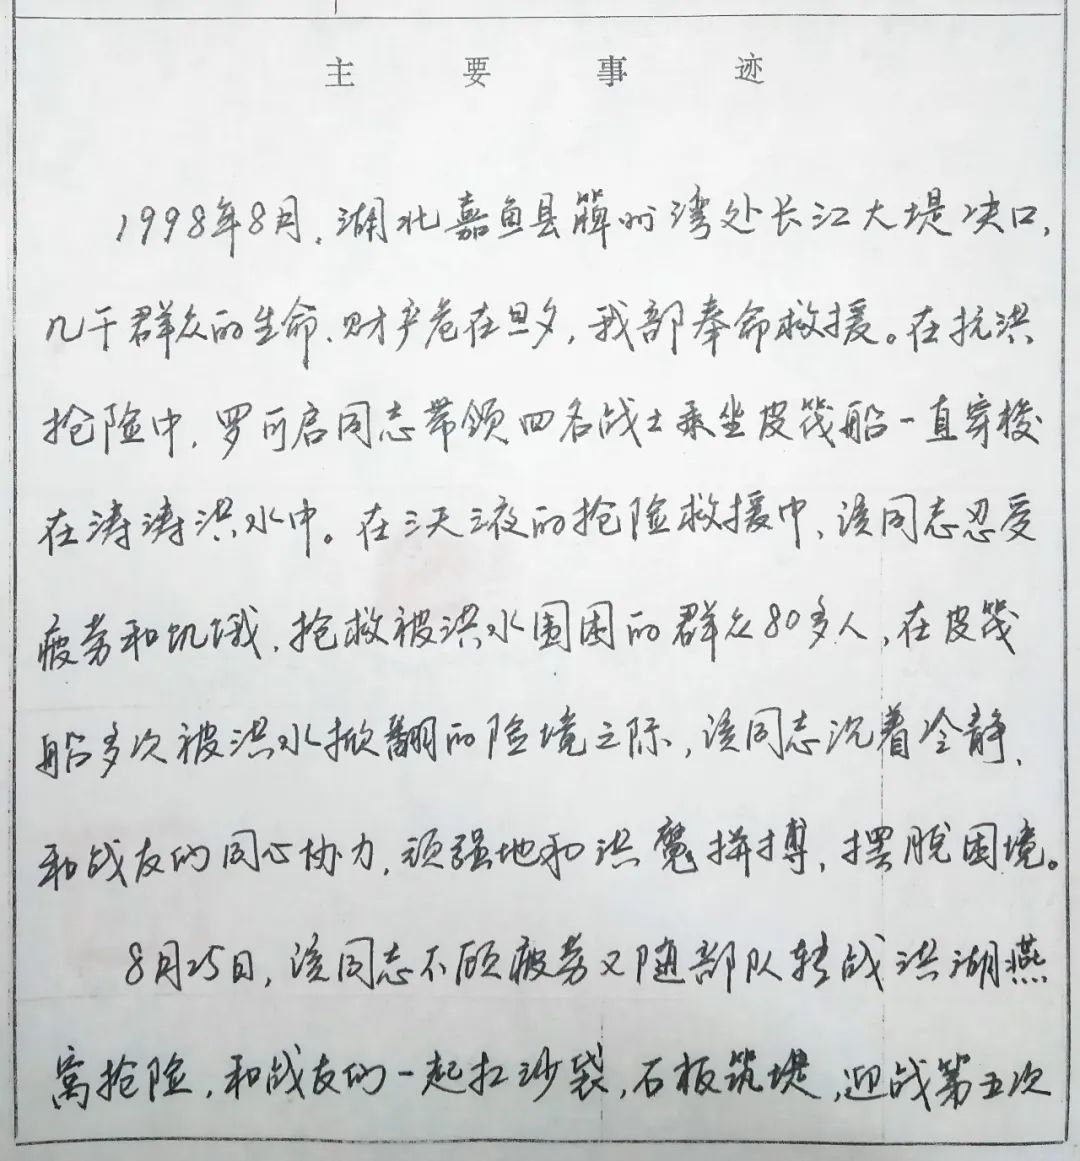 主要事迹
1998年8月，湖北嘉鱼县簰州湾处长江大堤决口，
几千群众的生命、财产危在旦夕，我部奉命救援。在抗洪
抢险中，罗可启同志带领四名战士乘坐皮筏船一直穿梭
在涛涛洪水中。在三天三夜的抢险救援中，该同志忍受
疲劳和饥饿，抢救被洪水围困的群众80多人，在皮筏
船多次被洪水掀翻的险境之际，该同志沉着冷静，
和战友们同心协力，顽强地和洪魔拼搏，摆脱困境。
8月25日，该同志不顾疲劳又随部队转战洪湖燕
窝抢险，和战友们一起扛沙袋，石板筑堤，迎战第五次